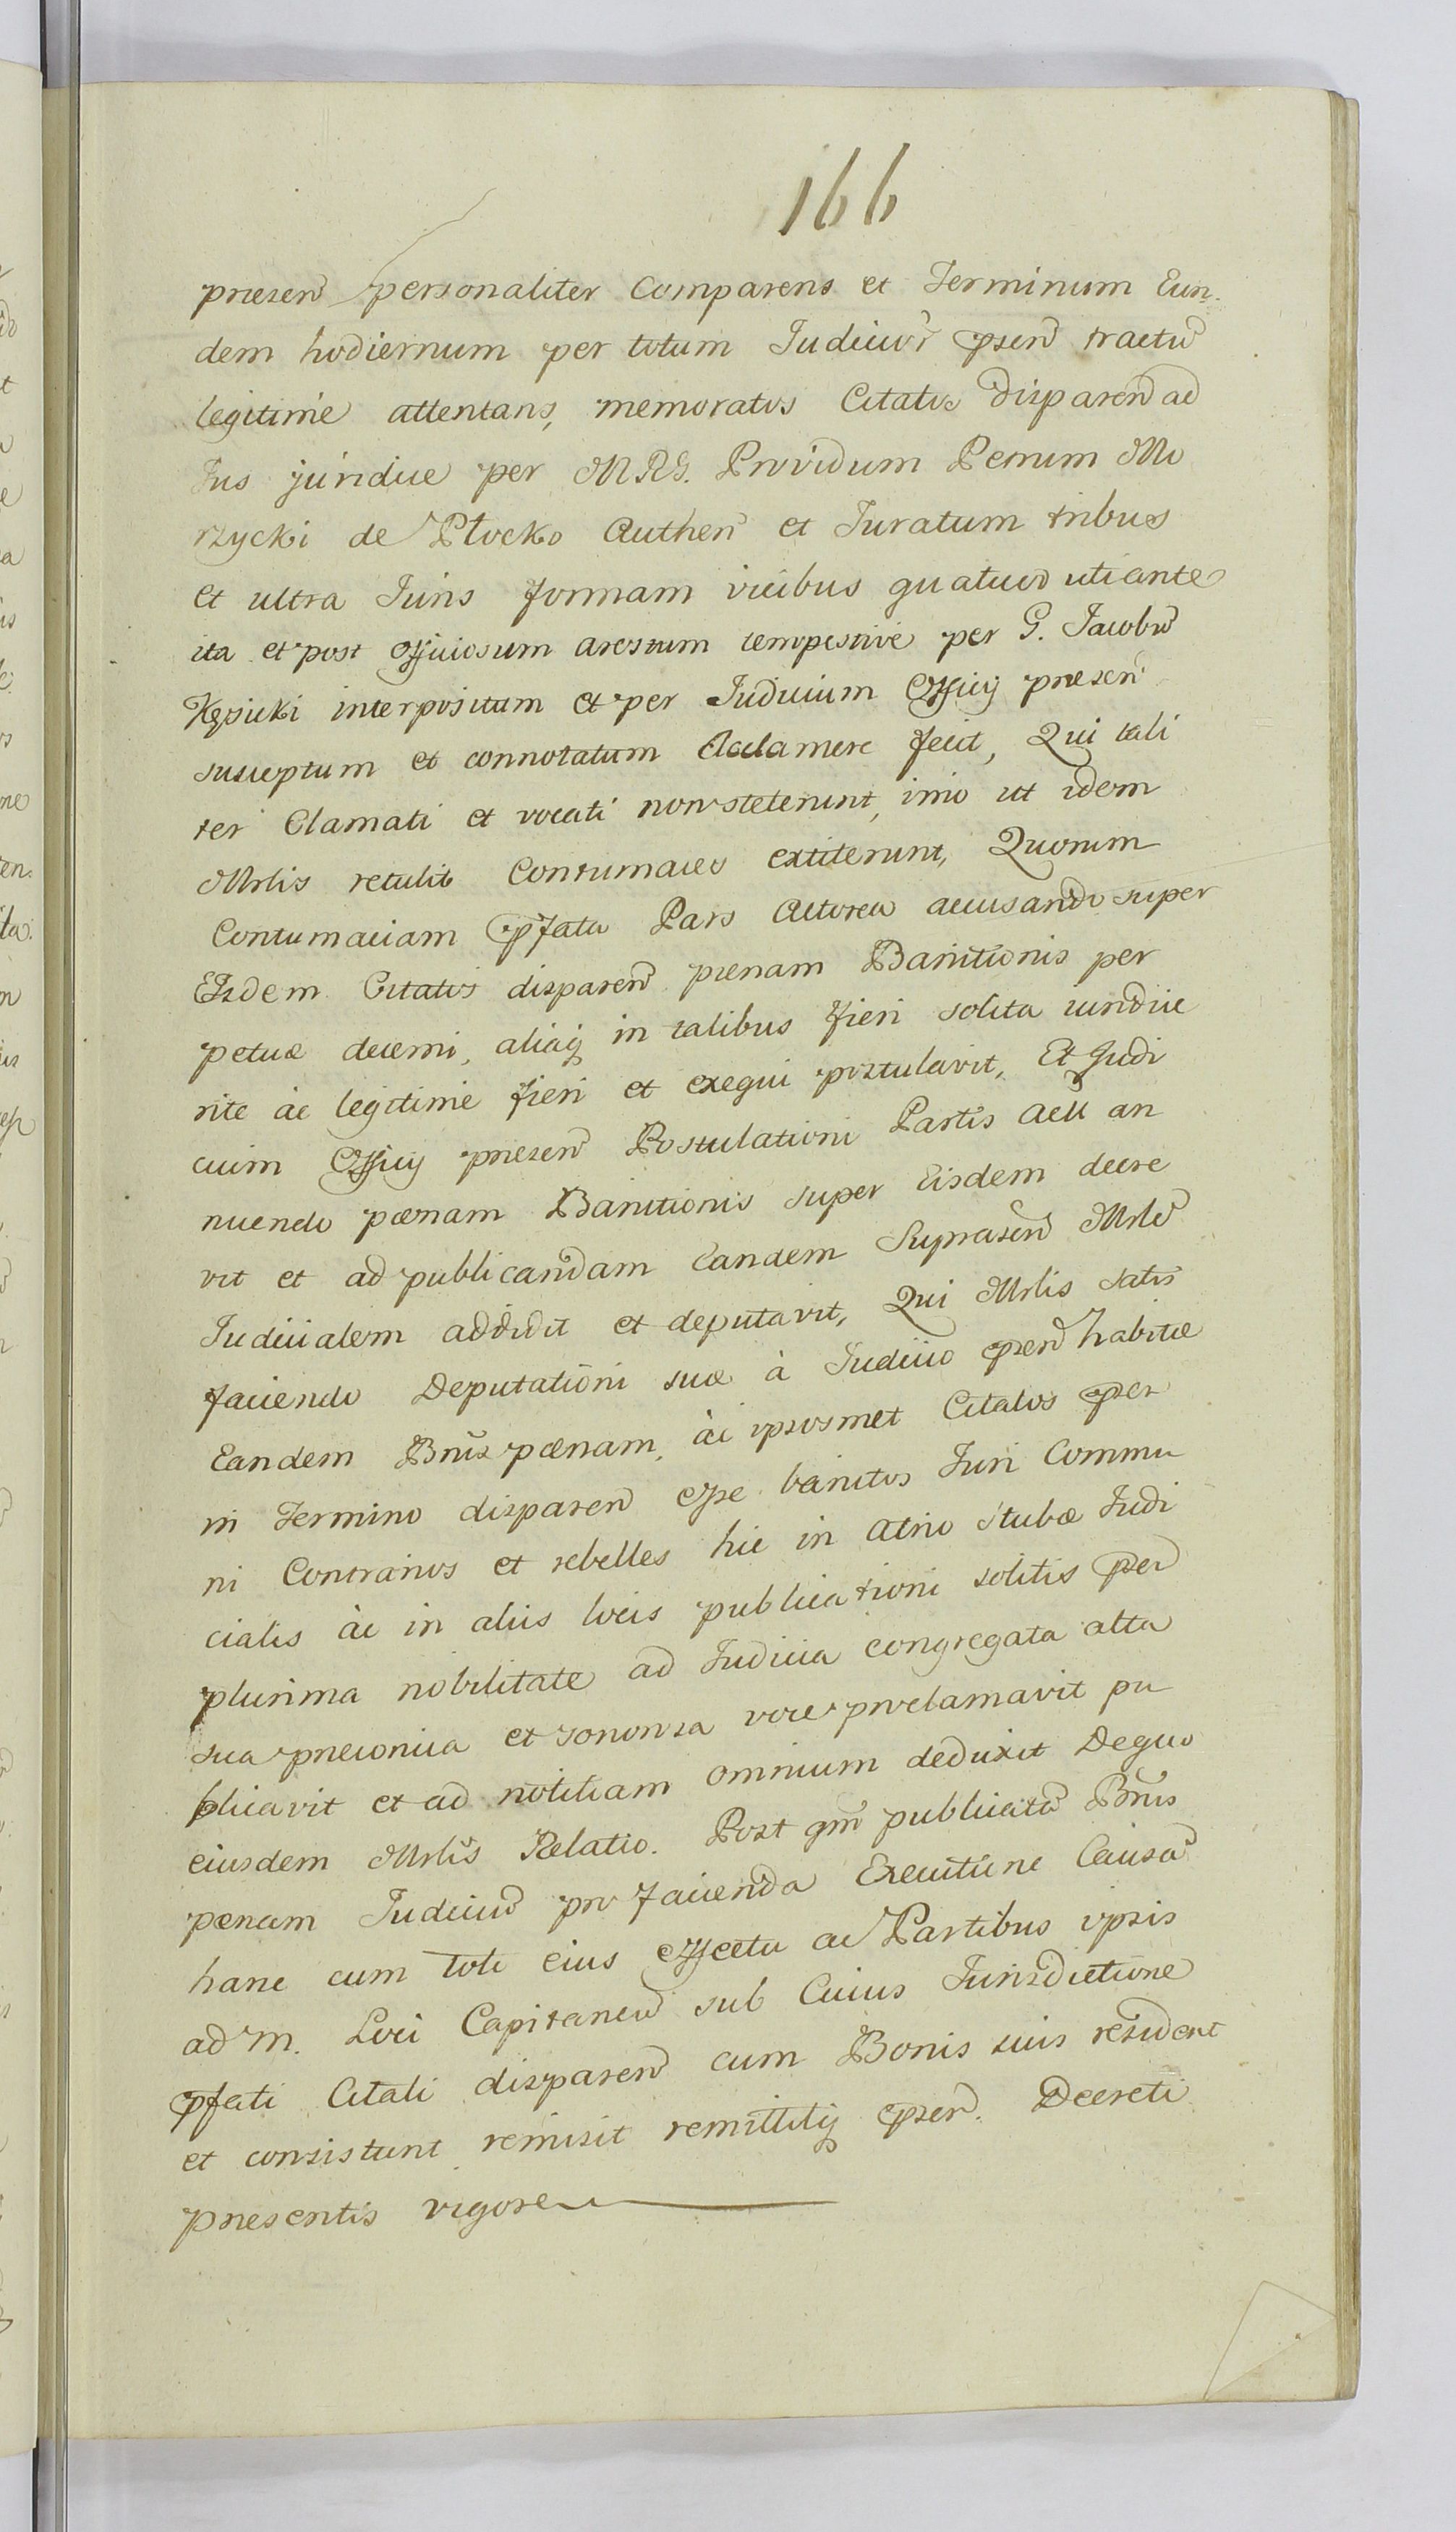 166
præsen personaliter Comparens et Terminum Eun
dem hodiernum per totum Judicior psen tractu
legitime attentans, memoratos Citatos disparen ad
Jus juridice per MRG. Providum Petrum Mo
rzycki de Płocko Authen et Juratum tribus
et ultra Juris formam vicibus quatuor uti ante
ita et post officiosum arestum tempestive per G. Jacobu
Kęsicki interpositum et per Judicium Officij præsen
susceptum et connotatum Acclamere fecit, Qui tali
ter Clamati et vocati non steterunt, imo ut idem
Mrlis retulit Contumaces extiterunt, Quorum
Contumaciam pfata Pars Actorea accusando super
Eisdem Citatis disparen pænam Banitionis per
petuæ decerni, aliaq in talibus fieri solita iuridice
rite ac legitime fieri et exequi postulavit, Et Judi
cium Officij præsen Postulationi Partis Actt an
nuendo pœnam Banitionis super Eisdem decre
vit et ad publicandam Eandem Suprasen Mrle
Judicialem addidit et deputavit, Qui Mrlis satis
faciendo Deputationi suæ à Judicio psen habitæ
Eandem Bnis pœnam, ac ipsosmet Citatos pser
ni Termino disparen esse banitos Juri Commu
ni Contrarios et rebelles hic in Atrio stubæ Judi
cialis ac in aliis locis publicationi solitis psen
plurima nobilitate ad Judicia congregata alta
sua preconica et sonorsa voce proclamavit pu
blicavit et ad notitiam omnium deduxit Dequo
eiusdem Mrlis Relatio. Post qm publicata Bnis
penam Judiciu pro facienda Executione Causa
hanc cum toto eius effectu ac Partibus ipsis
ad M. Loci Capitaneu sub Cuius Jurisdictione
pfati Citati disparen cum Bonis suis resident
et consistunt remisit remittitq psen. Decreti
presentis vigore